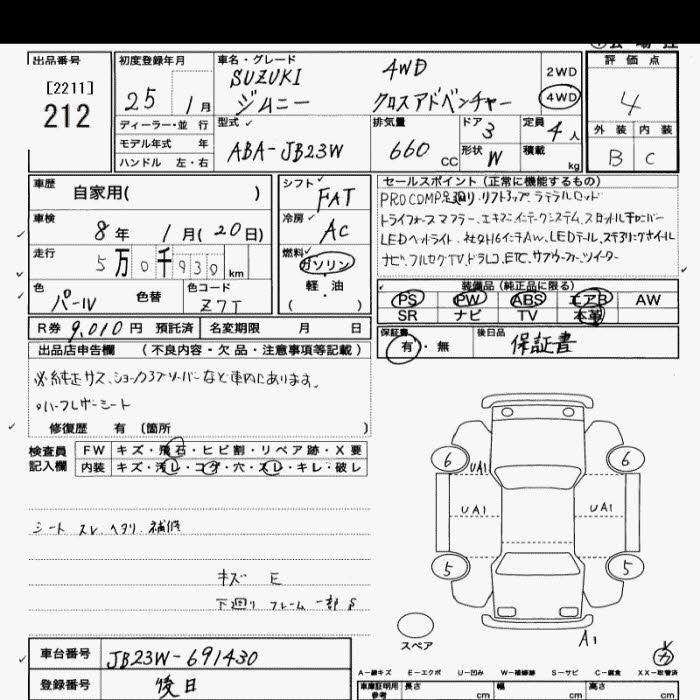 出品番号
[2211]
212
初度登録年月
25 1月
車名・グレード
SUZUKI 4WD
ジムニー クロスアドベンチャー
2WD
4WD
評価点
4
外装 内装
B C
ディーラー・並 行
モデル年式 年
ハンドル 左・右
型式
ABA-JB23W
排気量
660 CC
ドア 3
形状 W
定員 4人
積載 kg
車歴
自家用( )
車検
8年 1月(20日)
走行
5万0千930 km
色
パール
色替
色コード
Z7T
シフト
FAT
冷房
AC
燃料
ガソリン
軽・油
( )
セールスポイント(正常に機能するもの)
PROCOMP足廻り.リフトアップ.ラテラルロッド
LEDヘッドライト.社外16インチAW.LEDテール.ステアリングホイール
ナビ.フルセグTV.ドラレコ.ETC.サブウーファー.ツイーター
装備品(純正品に限る)
PS PW ABS エアB AW
SR ナビ TV 本革
R券 9,010円 預託済 名変期限 月 日
保証書
有・無
後日品
保証書
出品店申告欄 (不良内容・欠品・注意事項等記載)
※純正サス、ショックアブソーバーなど車内にあります。
○ハーフレザーシート
修復歴 有 (箇所 )
検査員
記入欄
FW キズ・飛石・ヒビ割・リペア跡・X要
内装 キズ・汚レ・コゲ・穴・スレ・キレ・破レ
シート スレ ヘタリ 補修
キズ E
下廻り フレーム 一部 S
6 6
UA1
UA1 UA1
5 5
スペア
A1
車台番号 JB23W-691430
登録番号 後日
A-線キズ E-エクボ U-凹み W-補修跡 S-サビ C-腐食 XX-取替済
車庫証明用
参考
長さ cm 幅 cm 高さ cm